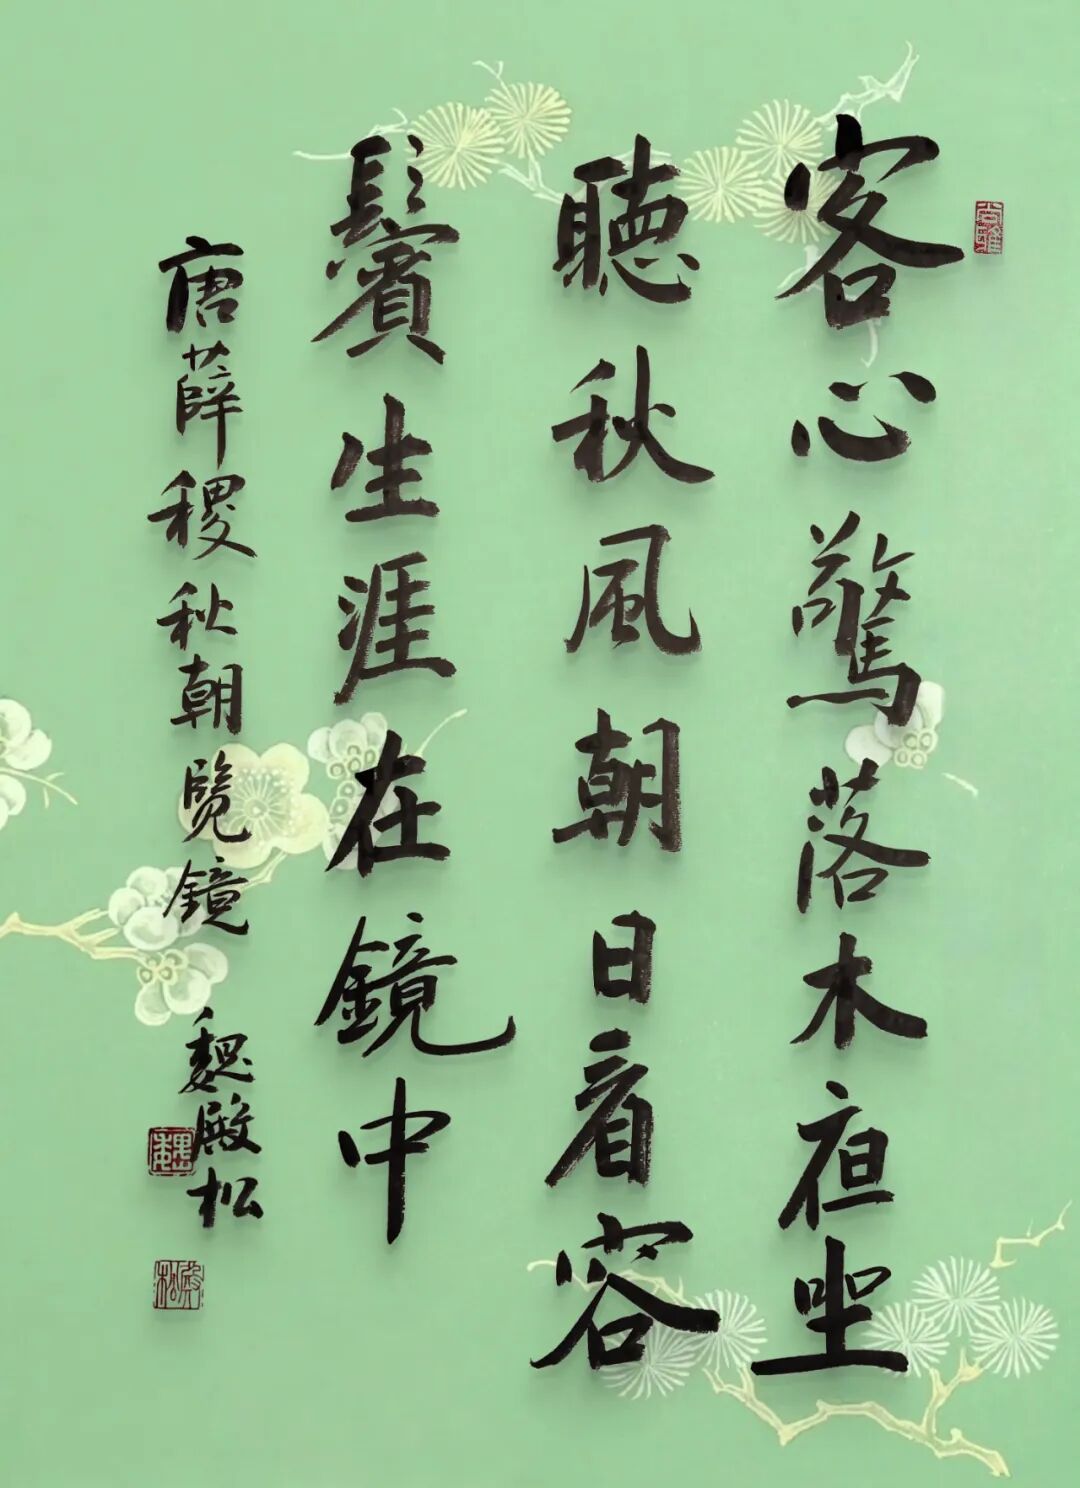 客心驚落木夜坐
聽秋風朝日看容
鬢生涯在鏡中
唐薛稷秋朝覽鏡 魏殿松
魏
殿松